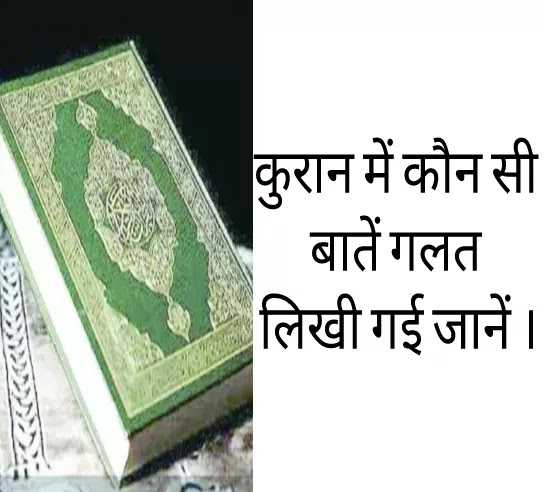 कुरान में कौन सी
बातें गलत
लिखी गई जानें।